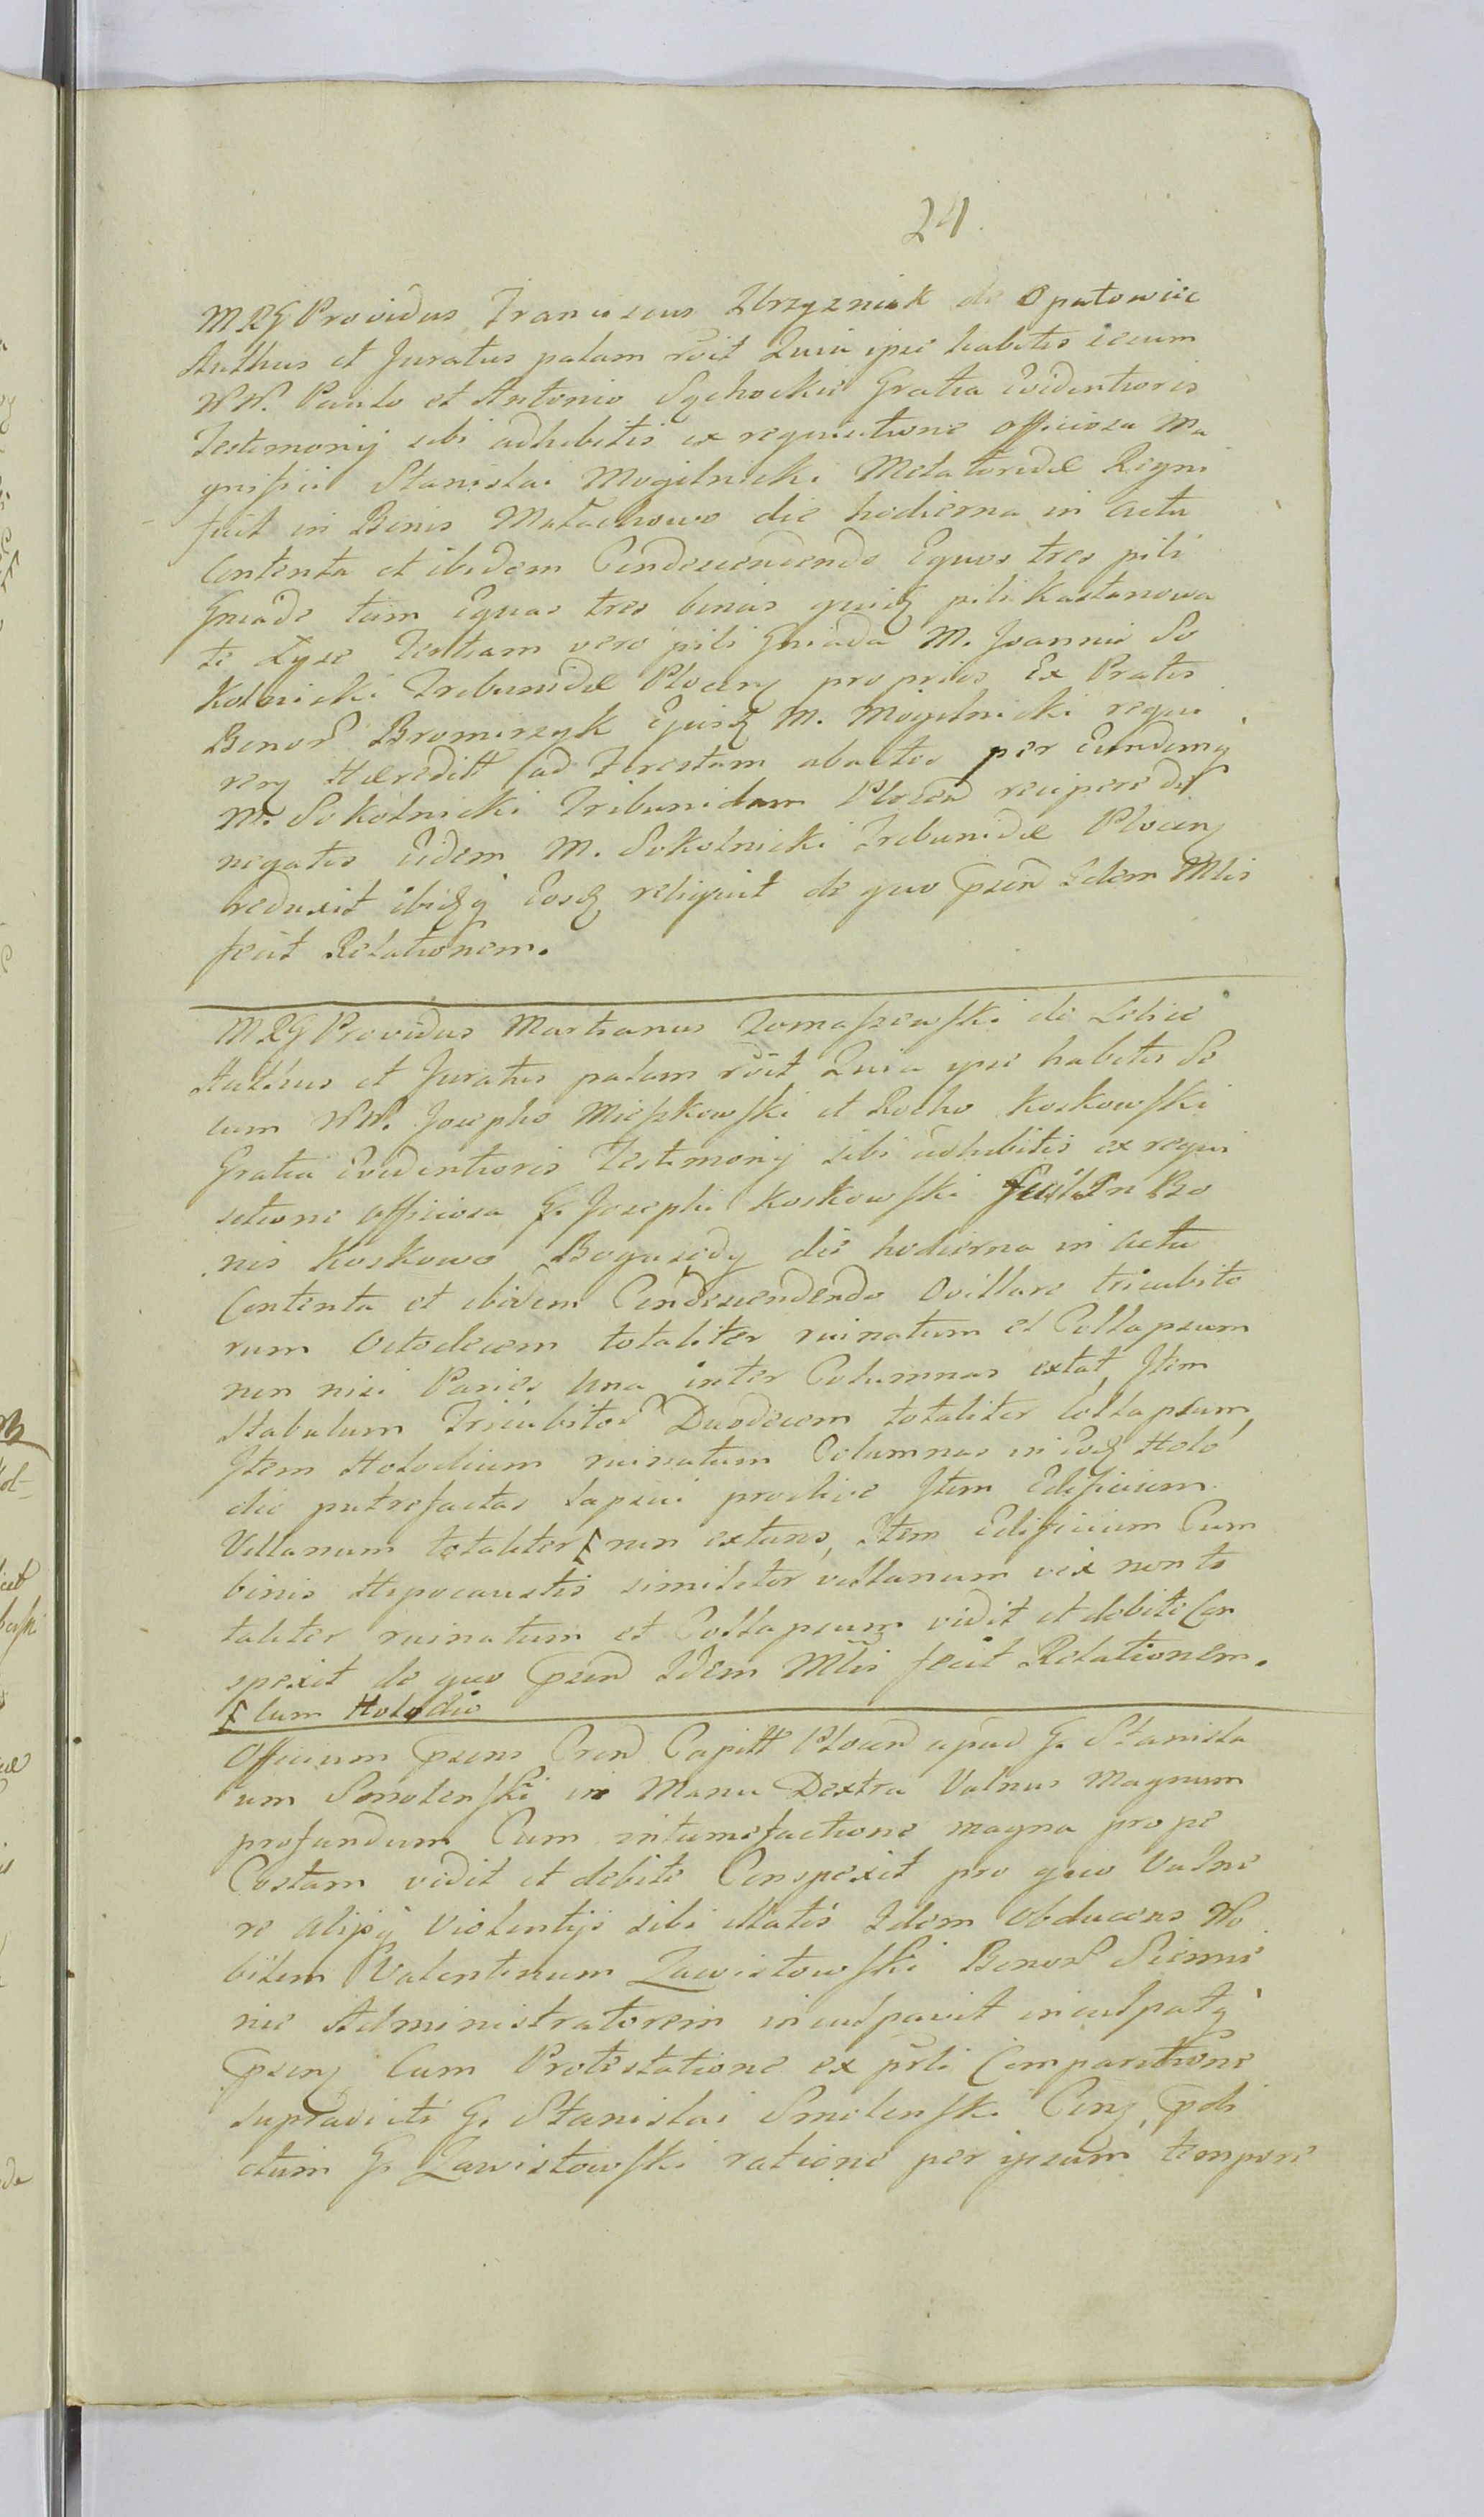 24.
MRG Providus Franciscus Zbrzyzniak de Opatowiie
Authus et Juratus palam rŏit Quia ipse habitis secum
NN. Paulo et Antonio Sychockie Gratia Evidentioris
Testimonÿ sibi adhibitis ex requisitione officiosa Ma
gnifici Stanislai Mogilnicki Metatoridæ Regni
fuit in Bonis Małachowo die hodierna in actu
Contenta et ibidem Condescendendo Equos tres pili
Gniade tum Equas tres binas quidȩ pili Kasztanowa
te Łyse Tertiam vero pili Gniada M. Joannis So
kolnicki Tribunidæ Plocen proprios Ex Pratis
Bonor Bromirzyk Ejusdȩ M. Mogilnicki requi
ren Hæreditt ad Forestam abactos per Eundemq
M. Sokolnicki Tribunidam Plocen recipere de
negatis Eidem M. Sokolnicki Tribunidæ Plocen
reduxit ibidȩq Eosdȩ reliquit de quo Psen Idem Mlis
fecit Relationem.
MRG Providus Martianus Tomaszewski de Lelice
Authus et Juratus palam rŏit Quia ipse habitis Se
cum NN. Josepho Mieszkowski et Rocho Koskowski
Gratia Evidentioris Testimonÿ sibi adhibitis ex requi
sitione officiosa G. Josephi Koskowski fuit In Bo
nis Koskowo Boguszędy die hodierna in actu
Contenta et ibidem Condescendendo Ovillare tricubito
rum Octodecem totaliter ruinatum et Collapsum
non nisi Paries Una inter Columnas extat, Item
Stabulum Tricubitor Duodecem totaliter Collapsum,
Item Hołodium ruinatum Columnas in Eodȩ Hoło
die putrefactas lapsui proclive Item Edificium
Villanum totaliter ⁅ non extans, Item Edificium Cum
binis Hypocaustis similiter villanum vix non to
taliter ruinatum et Collapsum vidit et debite Con
spexit de quo Psen Idem Mlis fecit Relationem.
⁅ Cum Hołodio
Officium Psens Cren Capitt Plocen apud G. Stanisla
um Smolenski in Manu Dextra Vulnus Magnum
profundum Cum intumefactione magna prope
Costam vidit et debite Conspexit pro quo Vulne
re alijsq Violentijs sibi illatis Idem Obducens No
bilem Valentinum Zawistowski Bonor Siemie
nie Administratorem inculpavit inculpatq
Psen Cum Protestatione ex pŕli Comparitione
supradicti G. Stanislai Smolenski Con Pdi
ctum G. Zawistowski ratione per ipsum tempore